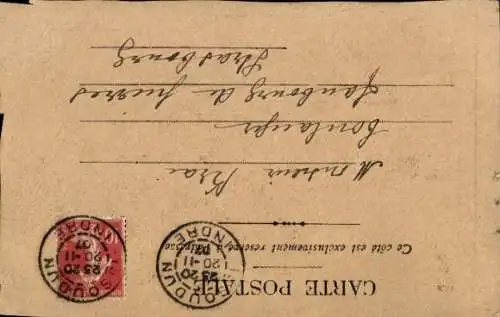 CARTE POSTALE
Ce côté est exclusivement réservé à l'adresse
ISSOUDUN
23 20
20-11
07
INDRE
ISSOUDUN
23 20
20-11
07
INDRE
Monsieur
boulanger
Faubourg de
Strasbourg